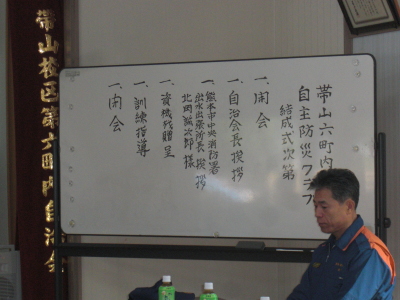 帯山六町内
自主防災クラブ
結成式次第
一、開会
一、自治会長挨拶
一、熊本市中央消防署
出水出張所長挨拶
北岡誠次郎様
一、資機材贈呈
一、訓練指導
一、閉会
帯山校区第六町内自治会